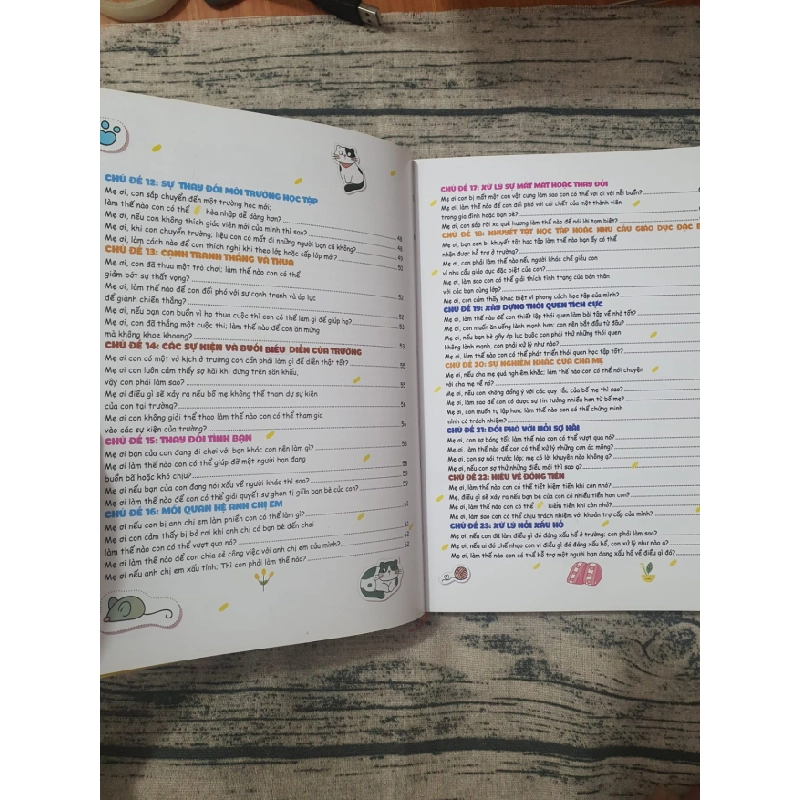 CHỦ ĐỀ 12: SỰ THAY ĐỔI MÔI TRƯỜNG HỌC TẬP
Mẹ ơi, con sắp chuyển đến một trường học mới;
làm thế nào con có thể hòa nhập dễ dàng hơn?
Mẹ ơi, nếu con không thích giáo viên mới của mình thì sao? 48
Mẹ ơi, khi con chuyển trường, liệu con có mất đi những người bạn cũ không? 49
Mẹ ơi, làm cách nào để con thích nghi khi theo lớp hoặc cấp lớp mới? 50
CHỦ ĐỀ 13: CẠNH TRANH THẮNG VÀ THUA
Mẹ ơi, con đã thua một trò chơi; làm thế nào con có thể
giảm bớt sự thất vọng?
Mẹ ơi, làm thế nào để con đối phó với sự cạnh tranh và áp lực 52
để giành chiến thắng?
Mẹ ơi, nếu bạn con buồn vì họ thua cuộc thì con có thể làm gì để giúp họ? 52
Mẹ ơi, con đã thắng một cuộc thi; làm thế nào để con ăn mừng
mà không khoe khoang? 53
CHỦ ĐỀ 14: CÁC SỰ KIỆN VÀ BUỔI BIỂU DIỄN CỦA TRƯỜNG
Mẹ ơi con có một vở kịch ở trường con cần phải làm gì để diễn thật tốt?
Mẹ ơi con luôn cảm thấy sợ hãi khi đứng trên sân khấu,
vậy con phải làm sao?
Mẹ ơi điều gì sẽ xảy ra nếu bố mẹ không thể tham dự sự kiện
của con tại trường?
Mẹ ơi con không giỏi thể thao làm thế nào con có thể tham gia
vào các sự kiện của trường?
CHỦ ĐỀ 15: THAY ĐỔI TÌNH BẠN
Mẹ ơi bạn của con đang đi chơi với bạn khác con nên làm gì?
Mẹ ơi làm thế nào con có thể giúp đỡ một người bạn đang
buồn bã hoặc khó chịu?
Mẹ ơi nếu bạn của con đang nói xấu về người khác thì sao?
Mẹ ơi làm thế nào để con có thể giải quyết sự ghen tị giữa bạn bè của con?
CHỦ ĐỀ 16: MỐI QUAN HỆ ANH CHỊ EM
Mẹ ơi nếu con bị anh chị em làm phiền con có thể làm gì?
Mẹ ơi con cảm thấy bị bỏ rơi khi anh chị có bạn bè đến chơi
làm thế nào con có thể vượt qua nó?
Mẹ ơi làm thế nào để con chia sẻ công việc với anh chị em của mình?
Mẹ ơi nếu anh chị em xấu tính; Thì con phải làm thế nào?
CHỦ ĐỀ 17: XỬ LÝ SỰ MẤT MÁT HOẶC THAY ĐỔI
Mẹ ơi con bị mất một con vật cưng làm sao con có thể vơi đi với nỗi buồn?
Mẹ ơi, làm thế nào để con đối phó với cái chết của một thành viên
trong gia đình hoặc bạn bè?
Mẹ ơi, con sắp rời xa quê hương làm thế nào để nói lời tạm biệt?
CHỦ ĐỀ 18: KHUYẾT TẬT HỌC TẬP HOẶC NHU CẦU GIÁO DỤC ĐẶC
Mẹ ơi, bạn con bị khuyết tật học tập làm thế nào bạn ấy có thể
nhận được hỗ trợ ở trường?
Mẹ ơi, con phải làm thế nào nếu người khác chế giễu con
vì nhu cầu giáo dục đặc biệt của con?
Mẹ ơi, làm sao con có thể giải thích tình trạng của bản thân
với các bạn cùng lớp?
Mẹ ơi, con cảm thấy khác biệt vì phong cách học tập của mình?
CHỦ ĐỀ 19: XÂY DỰNG THÓI QUEN TÍCH CỰC
Mẹ ơi, làm thế nào để con thiết lập thói quen làm bài tập về nhà tốt?
Mẹ ơi, con muốn ăn uống lành mạnh hơn: con nên bắt đầu từ đâu?
Mẹ ơi, nếu bạn bè gây áp lực buộc con phải thử những thói quen
không lành mạnh, con phải xử lý như nào?
Mẹ ơi, làm thế nào con có thể phát triển thói quen học tập tốt?
CHỦ ĐỀ 20: SỰ NGHIÊM KHẮC CỦA CHA MẸ
Mẹ ơi, nếu cha mẹ quá nghiêm khắc; làm thế nào con có thể nói chuyện
với cha mẹ về nó?
Mẹ ơi, nếu con không đồng ý với các quy tắc của bố mẹ thì sao?
Mẹ ơi, làm sao để con có được sự tin tưởng nhiều hơn từ bố mẹ?
Mẹ ơi, con muốn tự lập hơn; làm thế nào con có thể chứng minh
mình có trách nhiệm?
CHỦ ĐỀ 21: ĐỐI PHÓ VỚI NỖI SỢ HÃI
Mẹ ơi, con sợ bóng tối: làm thế nào con có thể vượt qua nó?
Mẹ ơi, làm thế nào để con có thể xử lý những cơn ác mộng?
Mẹ ơi, con sợ sói trước lớp; mẹ có lời khuyên nào không ạ?
Mẹ ơi, nếu con sợ thử những điều mới thì sao ạ?
CHỦ ĐỀ 22: HIỂU VỀ ĐỒNG TIỀN
Mẹ ơi, làm thế nào con có thể tiết kiệm tiền khi con mới?
Mẹ, điều gì sẽ xảy ra nếu bạn bè của con có nhiều tiền hơn con?
Mẹ ơi, làm thế nào con có thể kiếm tiền khi còn nhỏ?
Mẹ ơi, làm sao con có thể chịu trách nhiệm với khoản trợ cấp của mình?
CHỦ ĐỀ 23: XỬ LÝ NỖI XẤU HỔ
Mẹ ơi nếu con đã làm điều gì đó đáng xấu hổ ở trường: con phải làm sao?
Mẹ ơi, nếu ai đó chế nhạo con vì điều gì đó đáng xấu hổ, con xử lý như nào ạ?
Mẹ ơi, làm thế nào con có thể hỗ trợ một người bạn đang xấu hổ về điều gì đó?